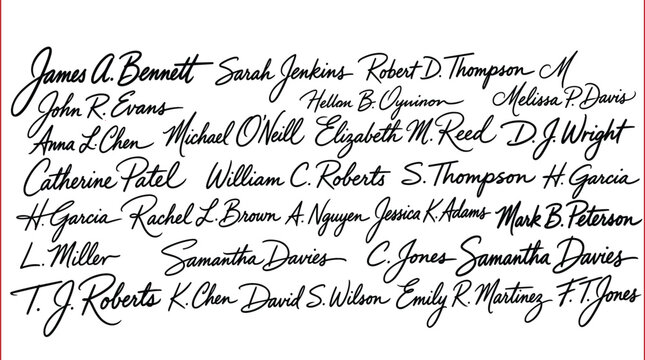 James A. Bennett Sarah Jenkins Robert D. Thompson M
John R. Evans Hellan B. Oyuinon Melissa P. Davis
Anna L. Chen Michael O'Neill Elizabeth M. Reed D. J. Wright
Catherine Patel William C. Roberts S. Thompson H. Garcia
H. Garcia Rachel L. Brown A. Nguyen Jessica K. Adams Mark B. Peterson
L. Miller Samantha Davies C. Jones Samantha Davies
T. J. Roberts K. Chen David S. Wilson Emily R. Martinez F. T. Jones